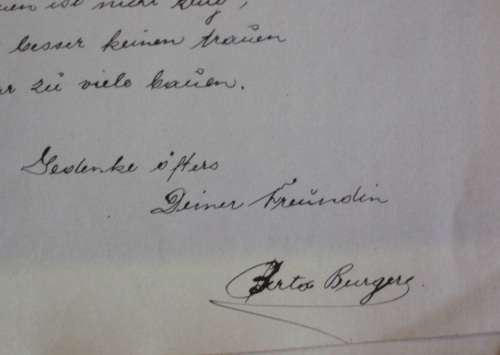 ist nicht klug,
besser keinen trauen
zu viele bauen.
Gedenke öfters
Deiner Freundin
Berta Burger.